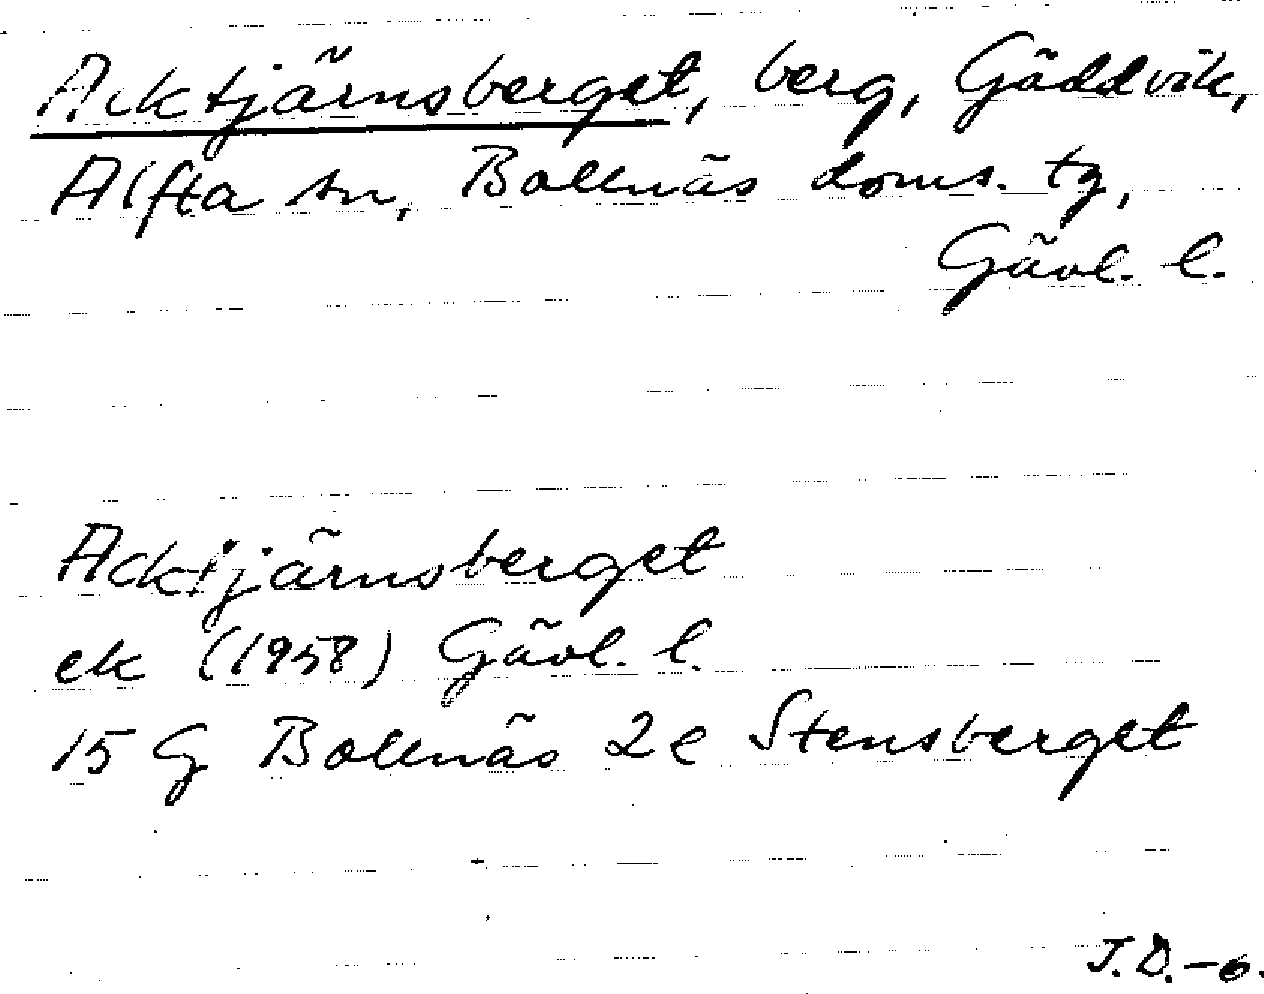 Acktjärnsberget, berg, Gäddvik,
Alfta sn, Bollnäs doms. tg,
Gävl. l.
Acktjärnsberget
ek (1958) Gävl. l.
15 G Bollnäs 2 e Stensberget
J.D.-6.